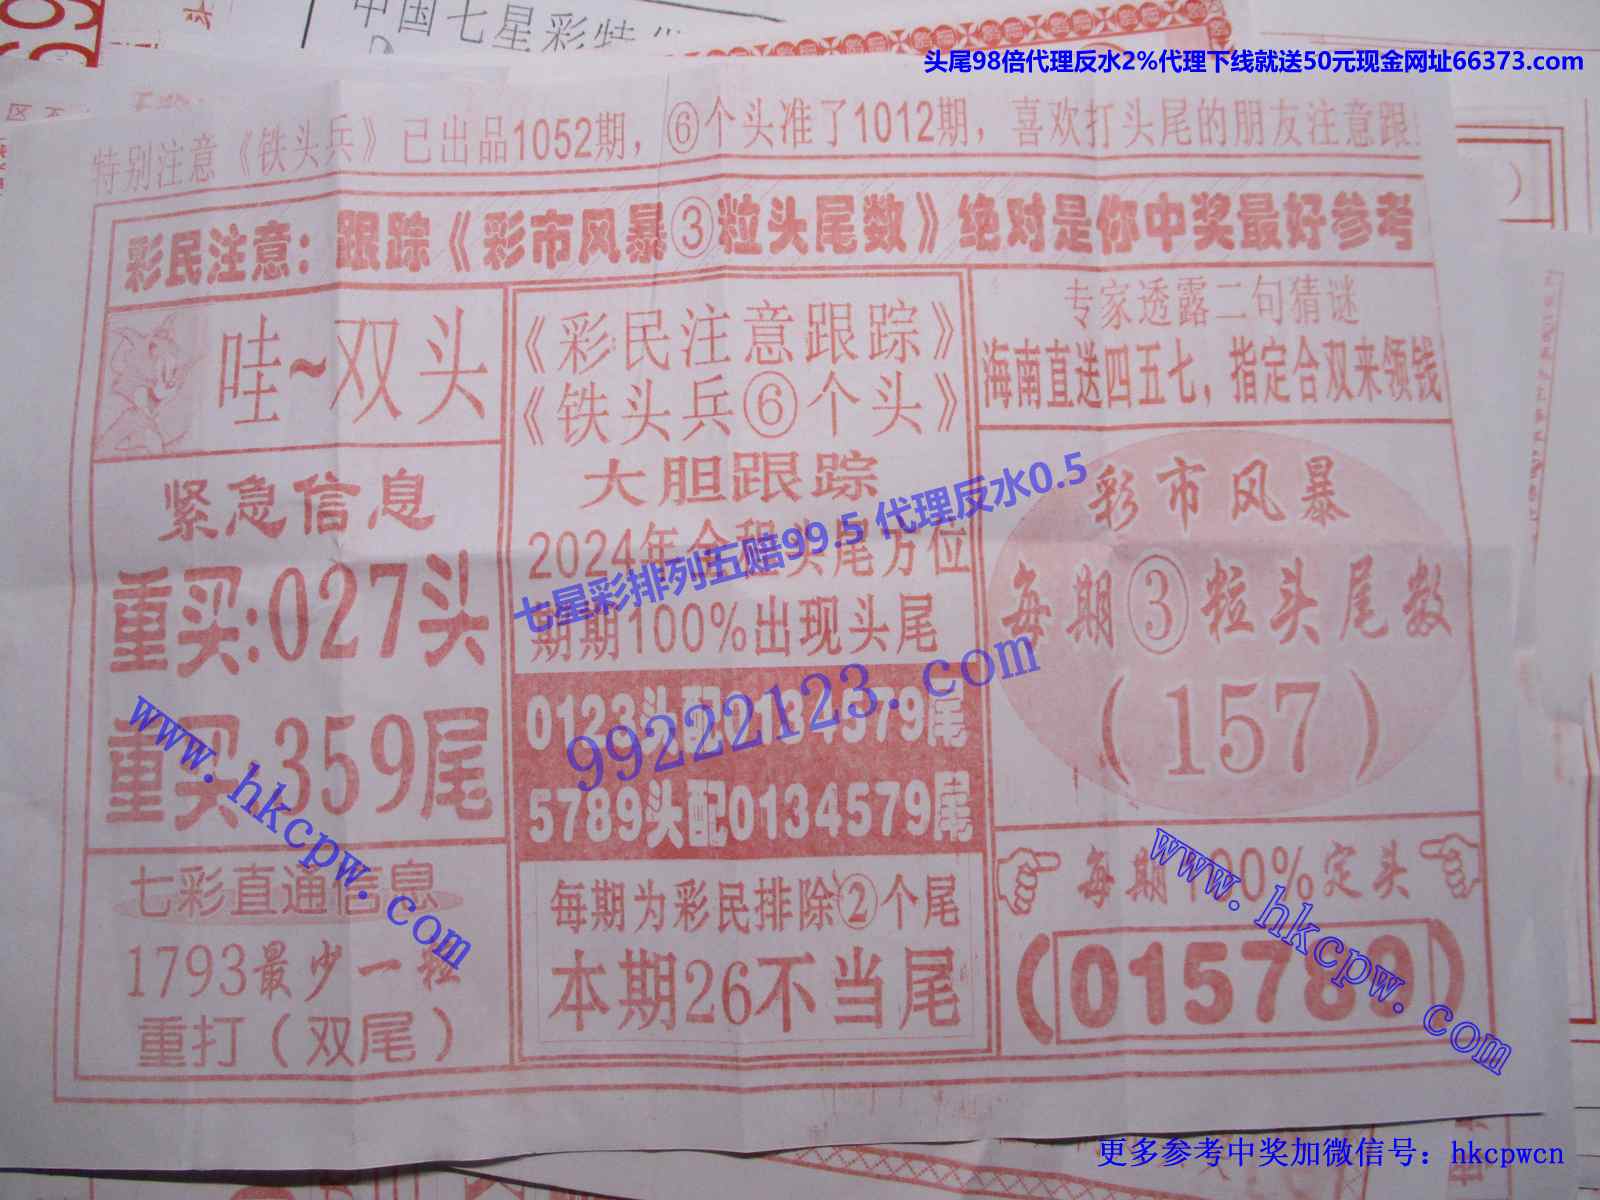 中国七星彩特
头尾98倍代理反水2%代理下线就送50元现金网址66373.com
特别注意《铁头兵》已出品1052期，⑥个头准了1012期，喜欢打头尾的朋友注意跟
彩民注意：跟踪《彩市风暴③粒头尾数》绝对是你中奖最好参考
哇~双头
紧急信息
重买:027头
重买:359尾
www.hkcpw.com
七彩直通信息
1793最少一粒
重打（双尾）
《彩民注意跟踪》
《铁头兵⑥个头》
大胆跟踪
2024年全程头尾方位
期期100%出现头尾
七星彩排列五赔99.5 代理反水0.5
99222123.com
0123头配0134579尾
5789头配0134579尾
每期为彩民排除②个尾
本期26不当尾
专家透露二句猜谜
海南直送四五七，指定合双来领钱
彩市风暴
每期③粒头尾数
（157）
每期100%定头
（015789）
www.hkcpw.com
更多参考中奖加微信号：hkcpwcn